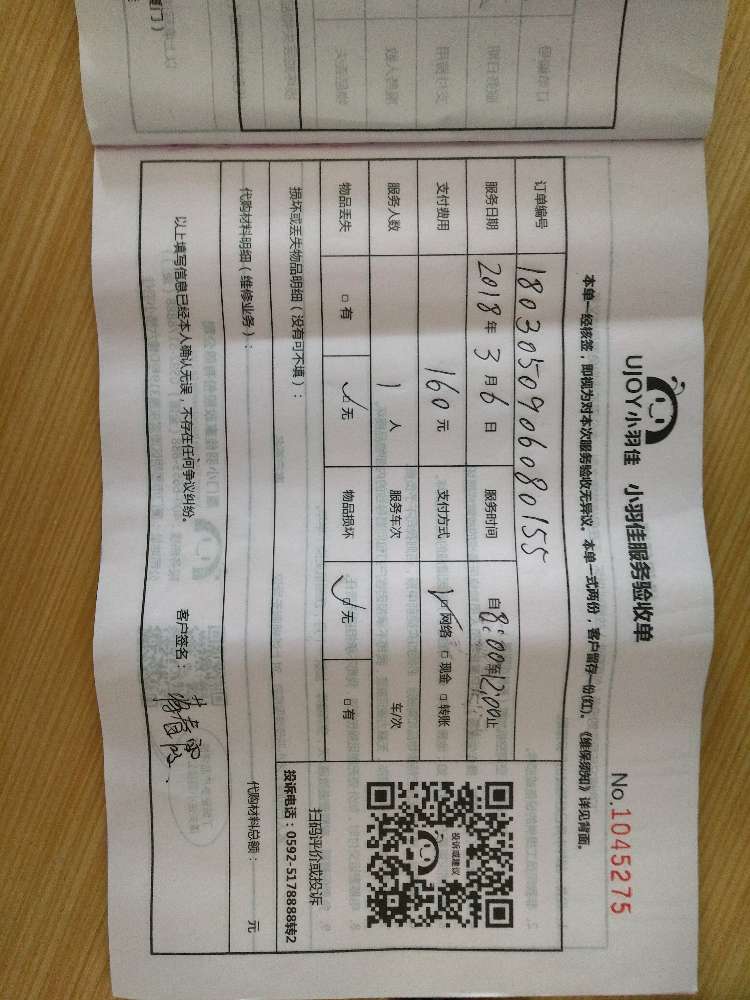 UJOY小羽佳 小羽佳服务验收单
No.1045275
本单一经核签，即视为对本次服务验收无异议。本单一式两份，客户留存一份(红)。《维保须知》详见背面。
订单编号 1803050906080155
服务日期 2018年3月6日 服务时间 自8:00至12:00止
支付费用 160元 支付方式 ☑网络 □现金 □转账
服务人数 1人 服务车次 车/次
物品丢失 □有 ☑无 物品损坏 ☑无 □有
投诉或建议
扫码评价或投诉
投诉电话：0592-5178888转2
损坏或丢失物品明细（没有可不填）：
代购材料明细（维修业务）： 代购材料总额： 元
以上填写信息已经本人确认无误，不存在任何争议纠纷。 客户签名：